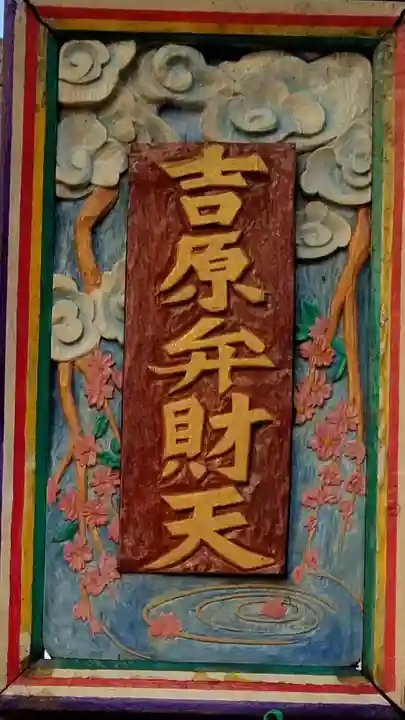 吉原弁財天